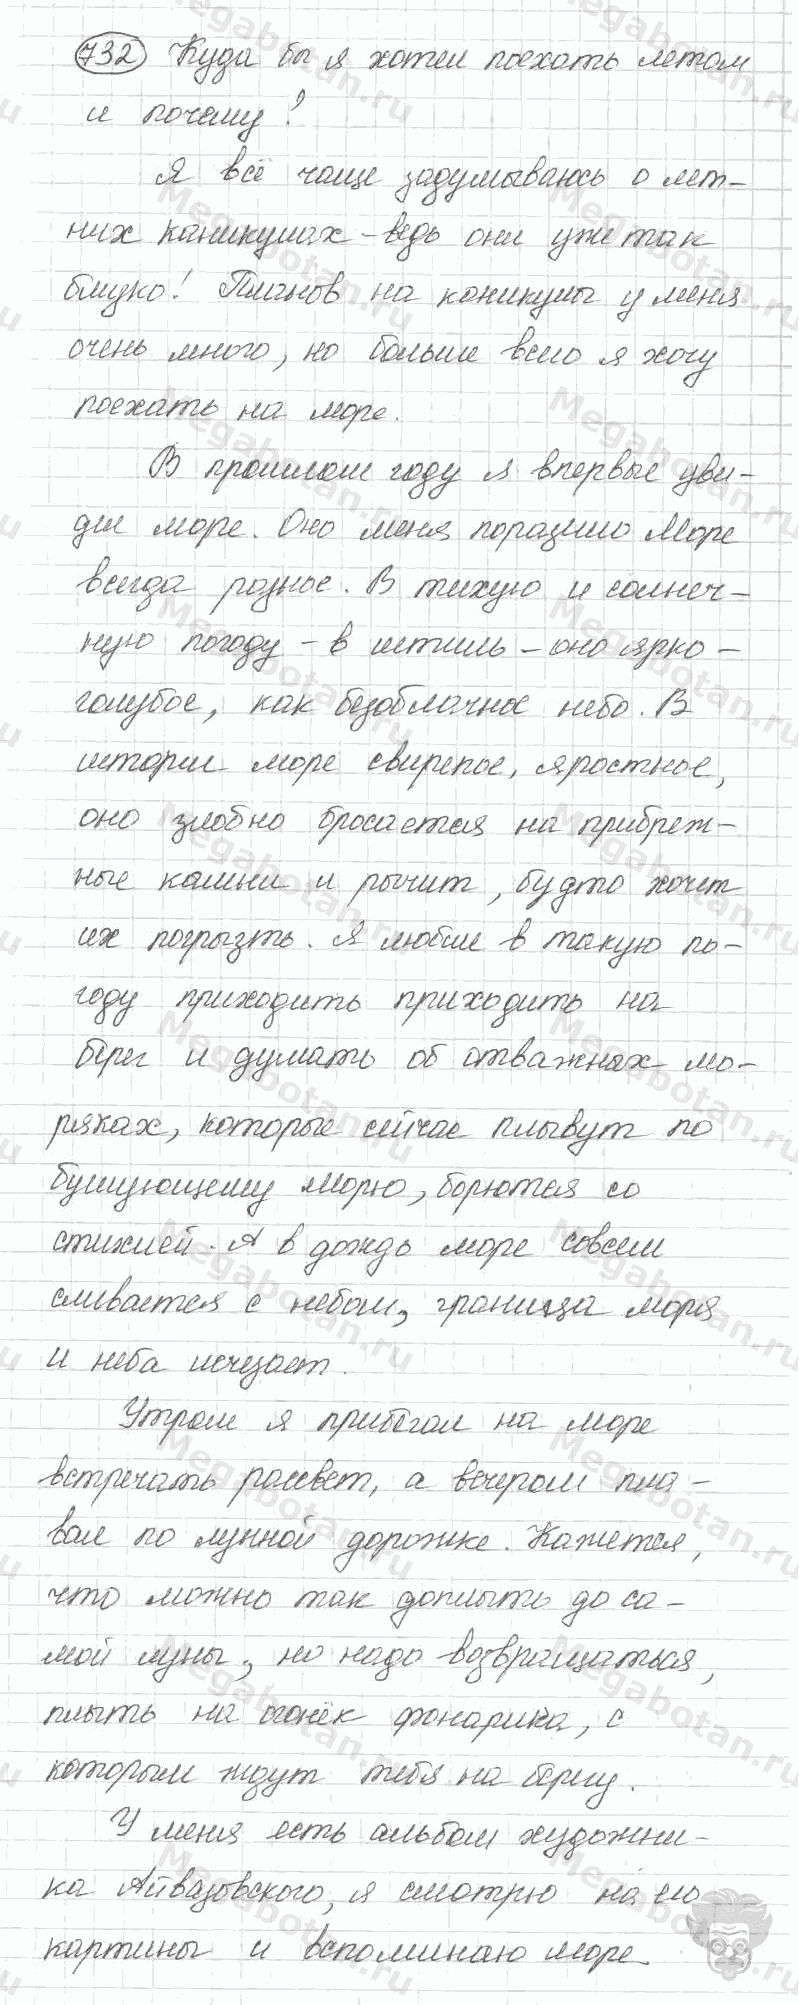 732 Куда бы я хотел поехать летом
и почему?
Я всё чаще задумываюсь о лет-
них каникулах - ведь они уже так
близко! Планов на каникулы у меня
очень много, но больше всего я хочу
поехать на море.
В прошлом году я впервые уви-
дел море. Оно меня поразило Море
всегда разное. В тихую и солнеч-
ную погоду - в штиль - оно ярко-
голубое, как безоблачное небо. В
шторм море свирепое, яростное,
оно злобно бросается на прибреж-
ные камни и рычит, будто хочет
их погрызть. Я люблю в такую по-
году приходить приходить на
берег и думать об отважных мо-
ряках, которые сейчас плывут по
бушующему морю, борются со
стихией. А в дождь море совсем
сливается с небом, граница моря
и неба исчезает.
Утром я прибегал на море
встречать рассвет, а вечером пла-
вал по лунной дорожке. Кажется,
что можно так доплыть до са-
мой луны, но надо возвращаться,
плыть на огонёк фонарика, с
которым ждут тебя на берегу.
У меня есть альбом художни-
ка Айвазовского, я смотрю на его
картины и вспоминаю море.
Megabotan.ru